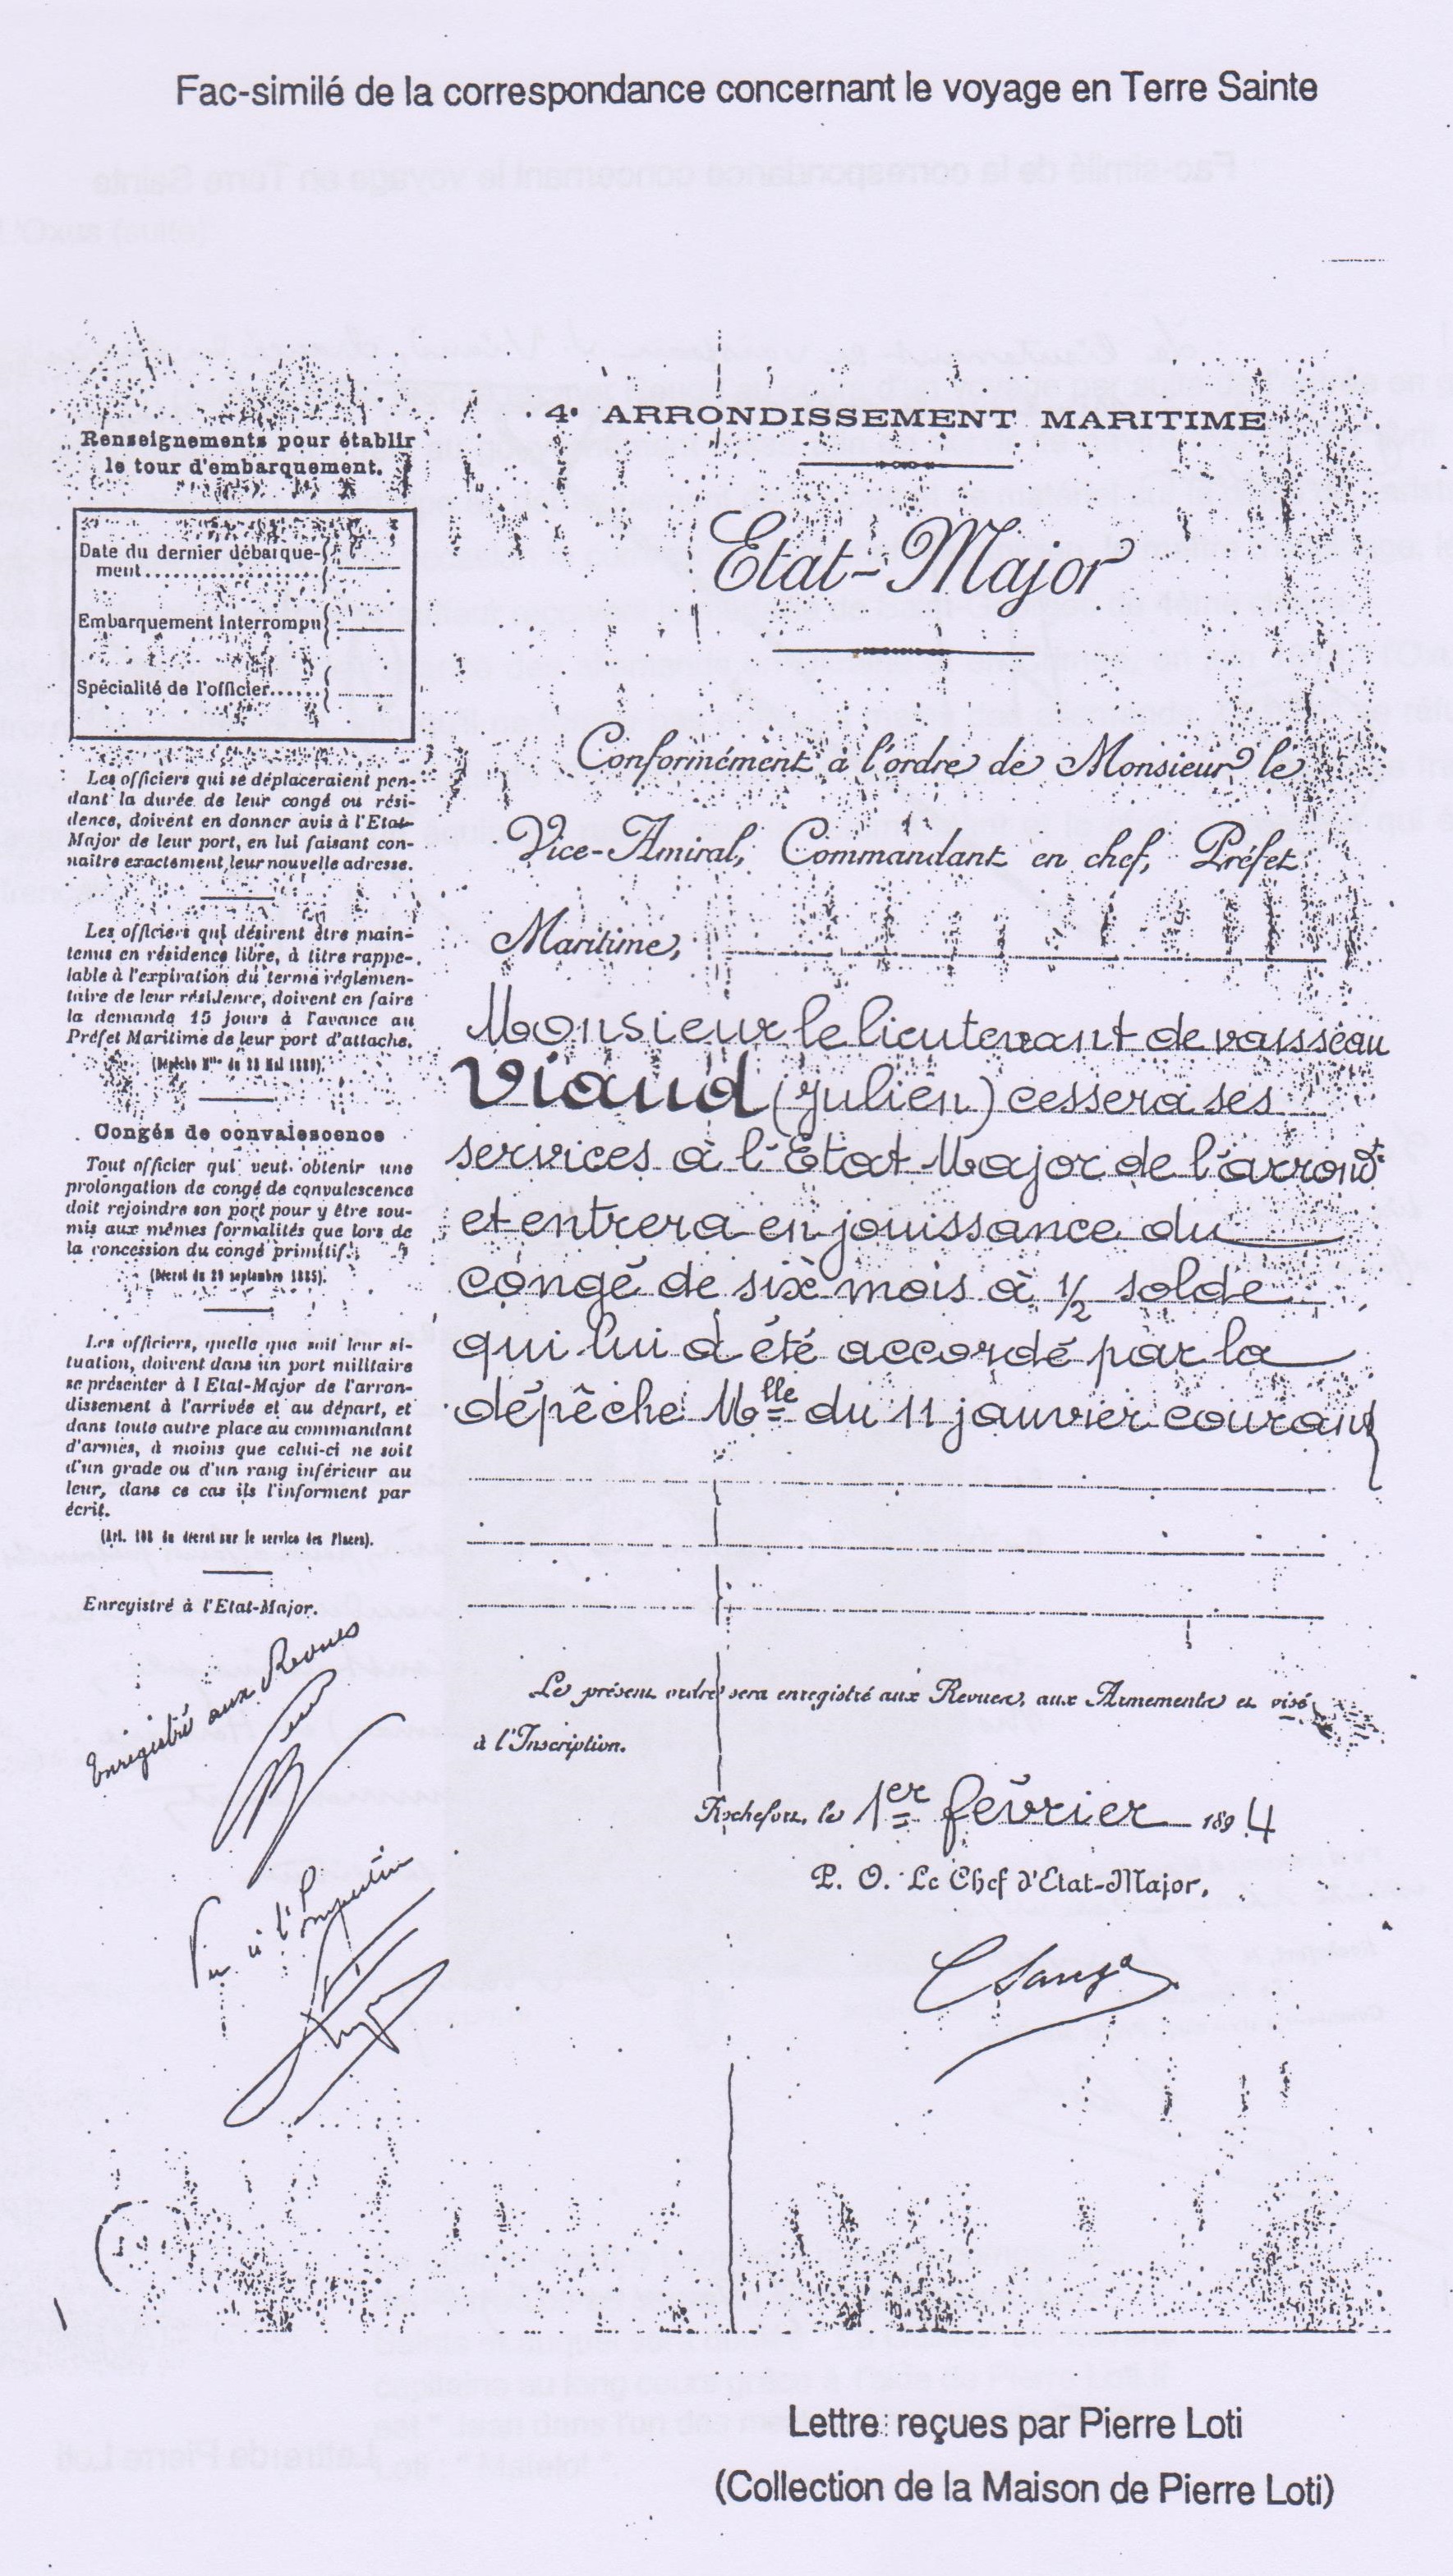 Fac-similé de la correspondance concernant le voyage en Terre Sainte
Renseignements pour établir
le tour d'embarquement.
Date du dernier débarque-
ment
Embarquement interrompu
Spécialité de l'officier
Les officiers qui se déplaceraient pen-
dant la durée de leur congé ou rési-
dence, doivent en donner avis à l'Etat-
Major de leur port, en lui faisant con-
naître exactement leur nouvelle adresse.
Les officiers qui désirent être main-
tenus en résidence libre, à titre rappe-
lable à l'expiration du terme réglemen-
taire de leur résidence, doivent en faire
la demande 15 jours à l'avance au
Préfet Maritime de leur port d'attache.
(Dépêche Mlle du 28 Mai 1889).
Congés de convalescence
Tout officier qui veut obtenir une
prolongation de congé de convalescence
doit rejoindre son port pour y être sou-
mis aux mêmes formalités que lors de
la concession du congé primitif.
(Décret du 29 septembre 1885).
Les officiers, quelle que soit leur si-
tuation, doivent dans un port militaire
se présenter à l'Etat-Major de l'arron-
dissement à l'arrivée et au départ, et
dans toute autre place au commandant
d'armes, à moins que celui-ci ne soit
d'un grade ou d'un rang inférieur au
leur, dans ce cas ils l'informent par
écrit.
(Art. 108 du décret sur le service des Places).
Enregistré à l'Etat-Major.
Enregistré aux Revues
Vu à l'Inspection
4e ARRONDISSEMENT MARITIME
Etat-Major
Conformément à l'ordre de Monsieur le
Vice-Amiral, Commandant en chef, Préfet
Maritime,
Monsieur le lieutenant de vaisseau
Viaud (Julien) cessera ses
services à l'Etat Major de l'arrondt
et entrera en jouissance du
congé de six mois à 1/2 solde
qui lui a été accordé par la
dépêche Mlle du 11 janvier courant
Le présent ordre sera enregistré aux Revues, aux Armements et visé
à l'Inscription.
Rochefort, le 1er février 1894
P. O. Le Chef d'Etat-Major,
Lettre reçues par Pierre Loti
(Collection de la Maison de Pierre Loti)